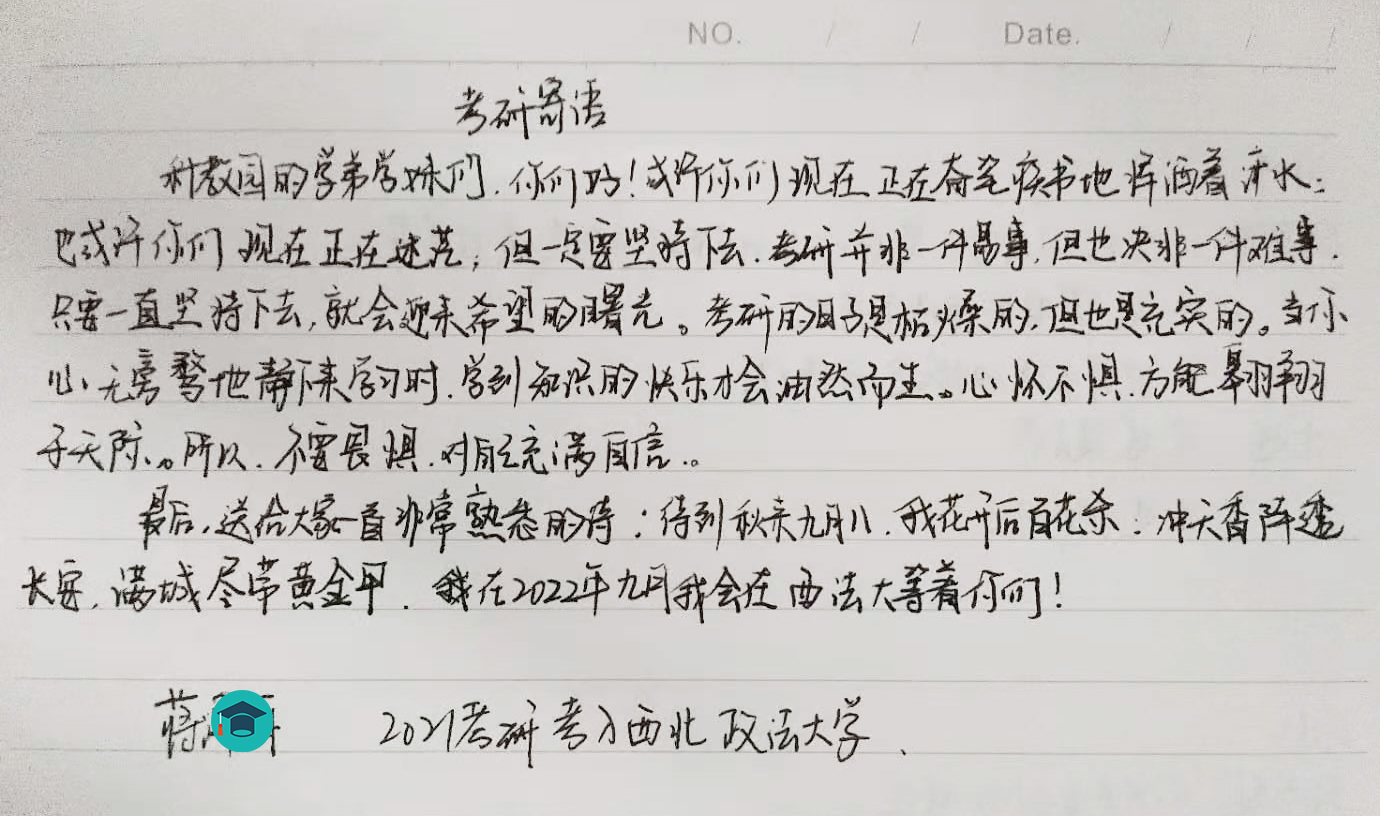 NO. / / Date. / / /
考研寄语
科教园的学弟学妹们,你们好!或许你们现在正在奋笔疾书地挥洒着汗水;
也或许你们现在正在迷茫,但一定要坚持下去.考研并非一件易事,但也决非一件难事.
只要一直坚持下去,就会迎来希望的曙光。考研的日子是枯燥的,但也是充实的。当你
心无旁骛地静下来学习时,学到知识的快乐才会油然而生。心怀不惧,方能翱翔
于天际。所以,不要畏惧,对自己充满自信。
最后,送给大家一首非常熟悉的诗:待到秋来九月八,我花开后百花杀;冲天香阵透
长安,满城尽带黄金甲.我在2022年九月我会在西法大等着你们!
蒋 2021考研考入西北政法大学.